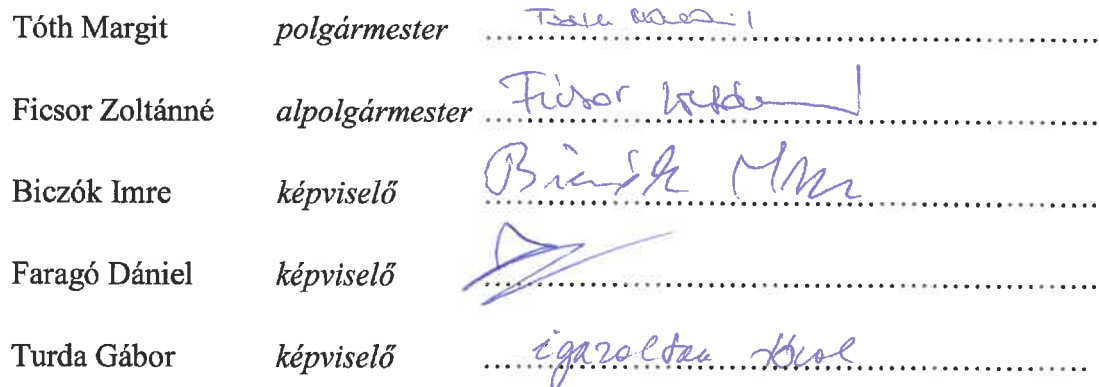 Tóth Margit polgármester ..........
Ficsor Zoltánné alpolgármester Ficsor ..........
Biczók Imre képviselő Biczók Imre ..........
Faragó Dániel képviselő ..........
Turda Gábor képviselő igazoltan távol ..........